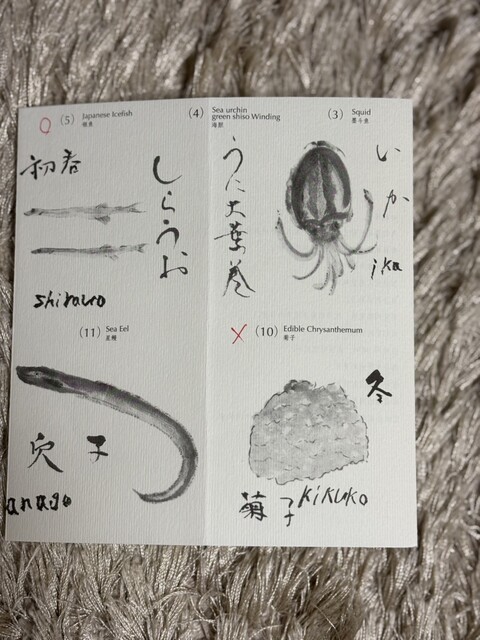 (5) Japanese Icefish
初春
しらうお
shirauo
(4) Sea urchin
green shiso Winding
海胆
うに大葉巻
(3) Squid
いか
ika
(11) Sea Eel
穴子
anago
X (10) Edible Chrysanthemum
菊子
冬
菊子 kikuko